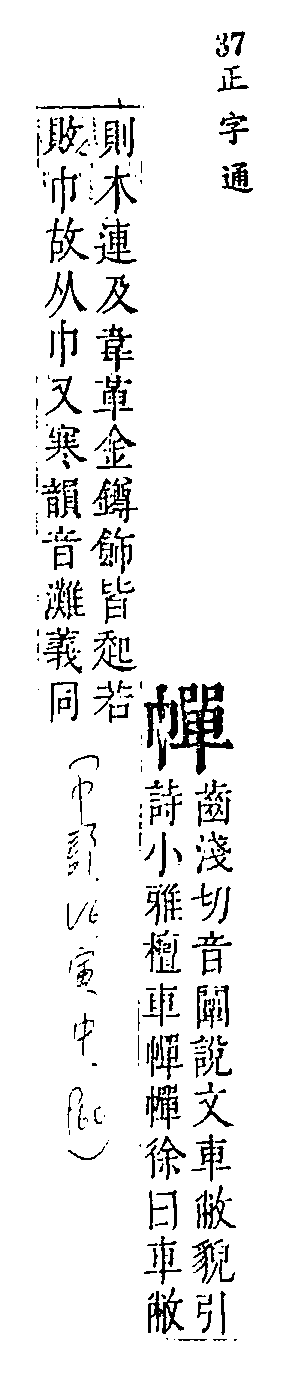 37
正字通
幝
齒淺切音闡說文車敝貌引
詩小雅檀車幝幝徐曰車敝
則木連及韋革金鐏飾皆起若
敗巾故从巾又寒韻音灘義同